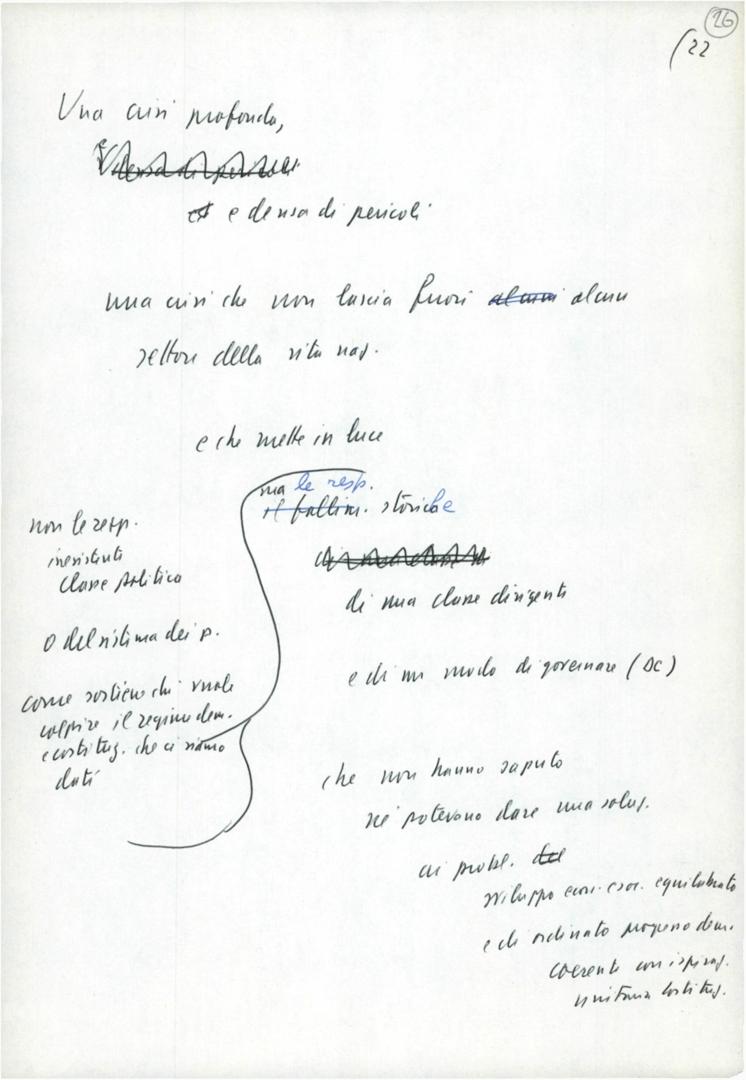 26
(22
Una crisi profonda,
e densa di pericoli
una crisi che non lascia fuori alcuni alcun
settore della vita naz.
e che mette in luce
non le resp.
inesistenti
classe politica
o del sistema dei p.
come sostiene chi vuole
colpire il regime dem.
e costituz. che ci siamo
dati
ma le resp.
il fallim. storiche
di una classe dirigente
e di un modo di governare (DC)
che non hanno saputo
né potevano dare una soluz.
ai probl. del
sviluppo econ. equilibrato
e di ordinato progresso dem.
coerente con ispiraz.
unitaria costituz.